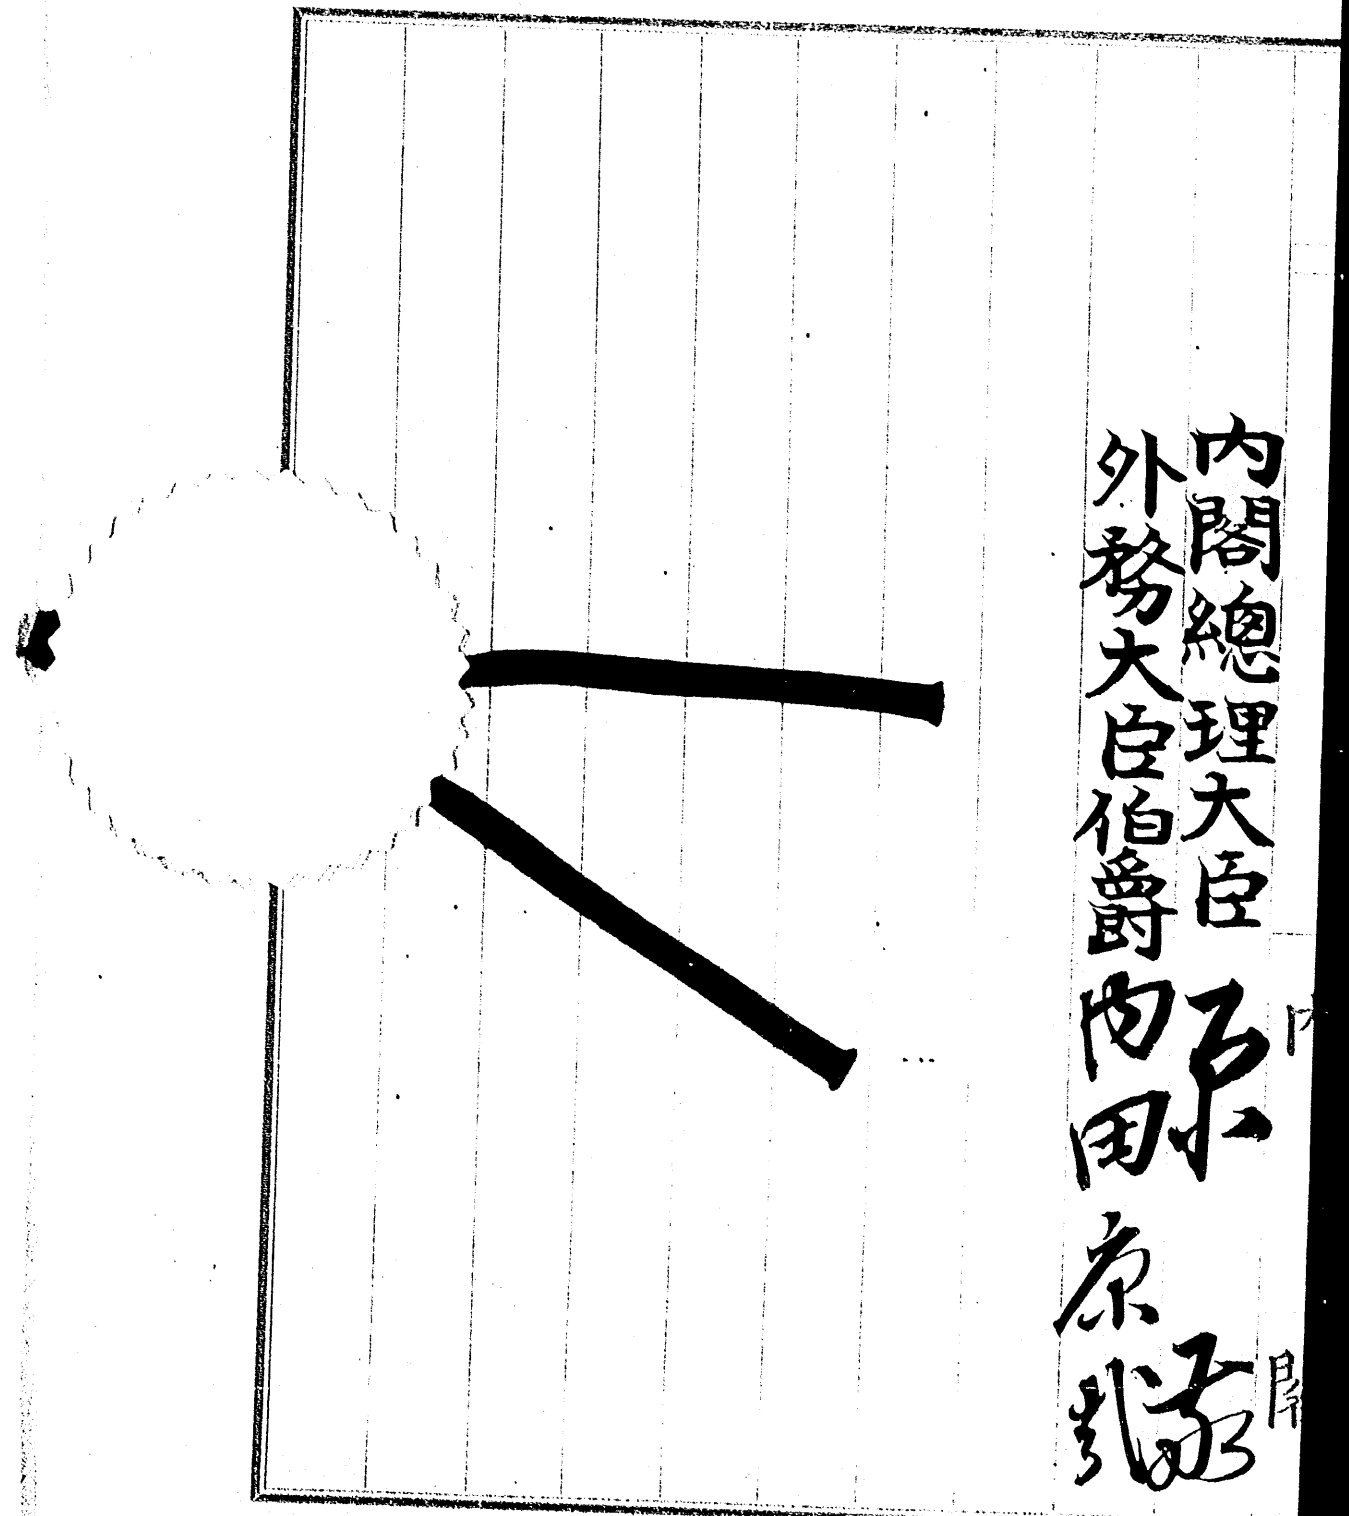 内閣總理大臣 原 敬
外務大臣伯爵 内田康哉
内 閣